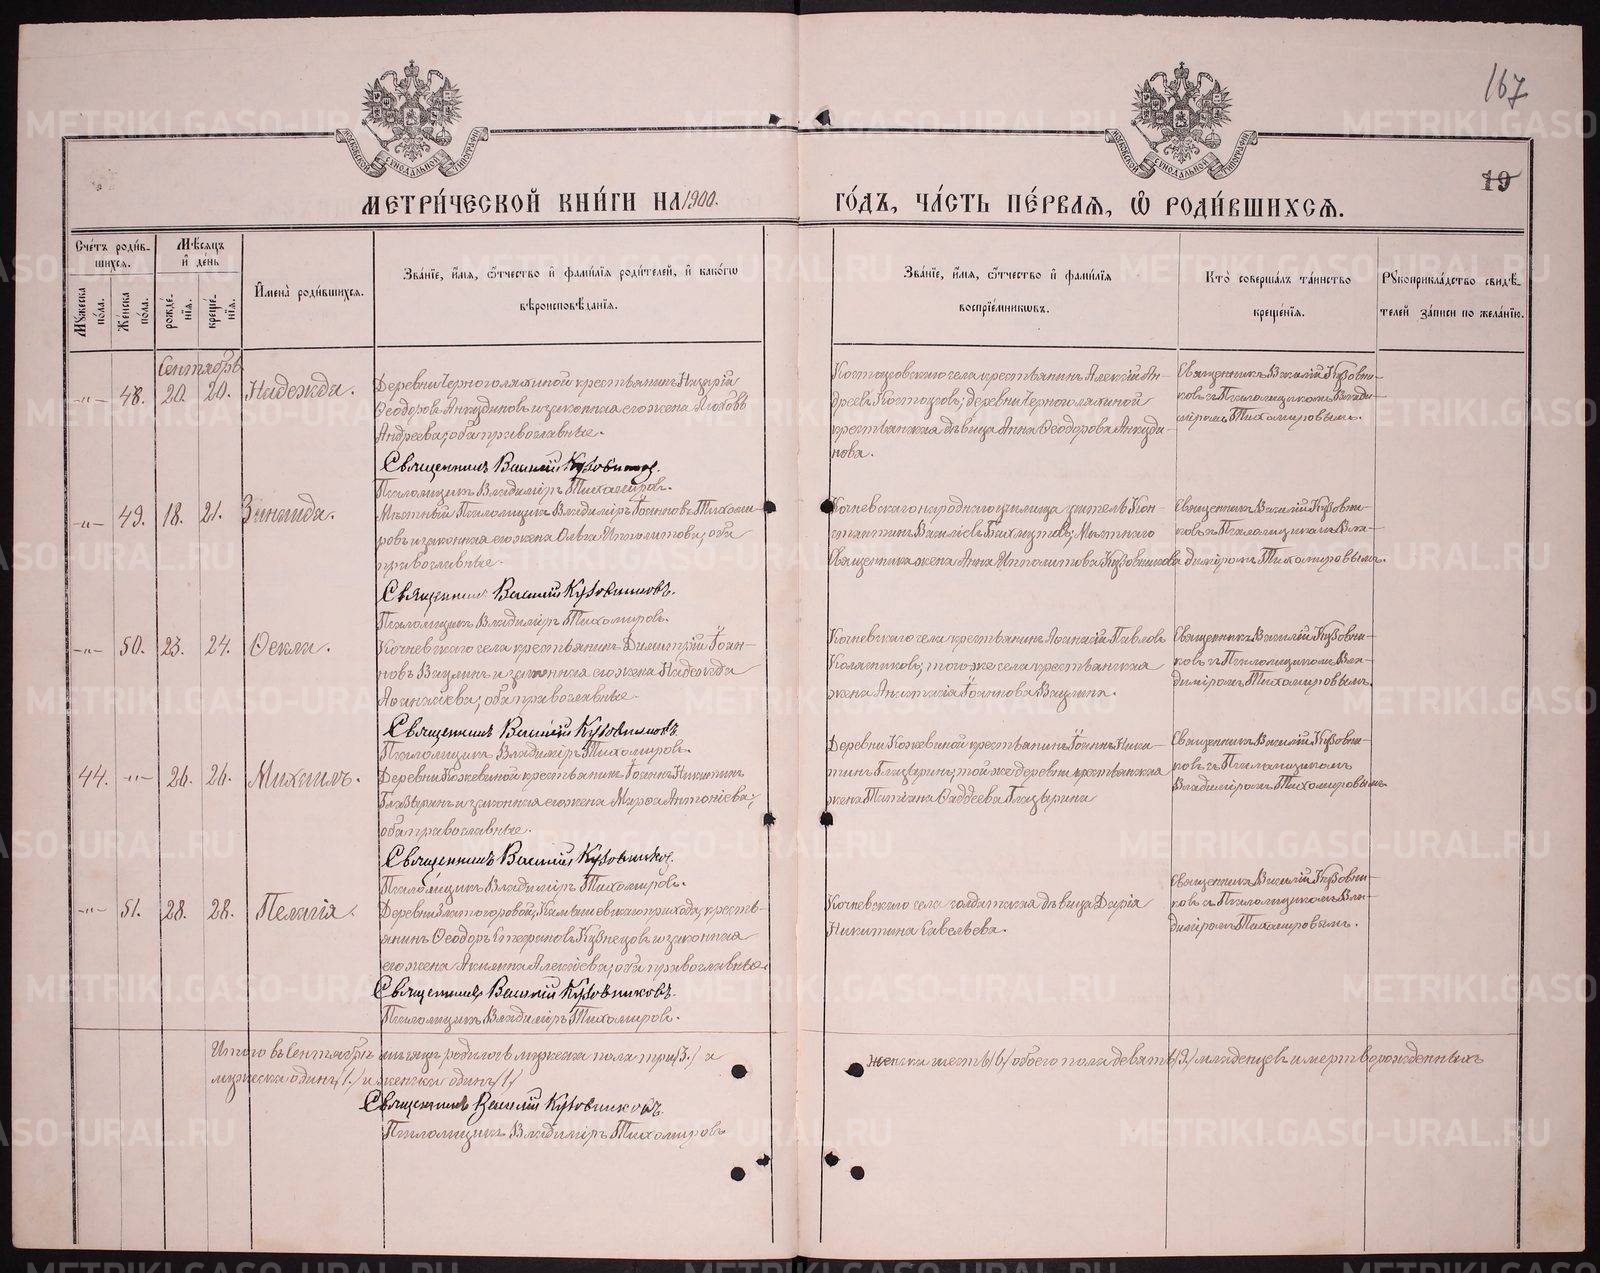 167
19
МОСКОВСКОЙ СѴНОДАЛЬНОЙ ТИПОГРАФІИ
МОСКОВСКОЙ СѴНОДАЛЬНОЙ ТИПОГРАФІИ
МЕТРИ́ЧЕСКОЙ КНИ́ГИ НА 1900. ГО́ДЪ, ЧА́СТЬ ПЕ́РВАЯ, Ѡ҆ РОДИ́ВШИХСЯ.
Сче́тъ роди́в-
шихся.
Мѣ́сяцъ
и҆ де́нь
Мꙋ́жеска по́ла.
Же́нска по́ла.
рожде́нїя.
креще́нїя.
И҆мена̀ роди́вшихся.
Зва́нїе, и҆́мя, ѻ҆́тчество и҆ фами́лїя роди́телей, и҆ како́гѡ
вѣроисповѣ́данїя.
Зва́нїе, и҆́мя, ѻ҆́тчество и҆ фами́лїя
воспрїе́мникѡвъ.
Кто̀ соверша́лъ та́инство
креще́нїя.
Рꙋкоприкла́дство свидѣ́-
телей за́писи по жела́нїю.
Сентябрь
-„- 48. 20. 20. Надежда.
Деревни Черноголяхиной крестьянинъ Назарій
Ѳеодоровъ Анкудиновъ и законная его жена Любовь
Андреева; оба православные.
Священникъ Василій Кузовниковъ.
Псаломщикъ Владиміръ Тихомировъ.
Андреевъ Костоусовъ; деревни Черноголяхиной
крестьянская дѣвица Анна Ѳеодорова Анкуди-
нова.
Священникъ Василій Кузовни-
ковъ съ Псаломщикомъ Влади-
міромъ Тихомировымъ.
-„- 49. 18. 21. Зинаида.
Мѣстный Псаломщикъ Владиміръ Іоанновъ Тихоми-
ровъ и законная его жена Ольга Ипполитова; оба
православные.
Священникъ Василій Кузовниковъ.
Псаломщикъ Владиміръ Тихомировъ.
Кочневскаго народнаго училища учитель Кон-
стантинъ Василіевъ; Мѣстнаго
Священника жена Анна Ипполитова Кузовникова
Священникъ Василій Кузовни-
ковъ съ Псаломщикомъ Вла-
диміромъ Тихомировымъ.
-„- 50. 23. 24. Ѳекла.
Кочневскаго села крестьянинъ Димитрій Іоан-
новъ Вацлинъ и законная его жена Надежда
Аѳанасіева; оба православные.
Священникъ Василій Кузовниковъ.
Псаломщикъ Владиміръ Тихомировъ.
Кочневскаго села крестьянинъ Павловъ
Колясниковъ; того же села крестьянская
жена Анастасія Іоаннова
Священникъ Василій Кузовни-
ковъ съ Псаломщикомъ Вла-
диміромъ Тихомировымъ.
44. -„- 26. 26. Михаилъ.
Деревни Кожевиной крестьянинъ Іоаннъ Никитинъ
Глазыринъ и законная его жена Марѳа Антоніева;
оба православные.
Священникъ Василій Кузовниковъ.
Псаломщикъ Владиміръ Тихомировъ.
Деревни Кожевиной крестьянинъ Іоаннъ Ники-
тинъ Глазыринъ; той же деревни крестьянская
жена Татіана Ѳаддеева Глазырина
Священникъ Василій Кузовни-
ковъ съ Псаломщикомъ
Владиміромъ Тихомировымъ.
-„- 51. 28. 28. Пелагія.
Деревни Златогоровой, Камышевскаго прихода, кресть-
янинъ Ѳеодоръ Стефановъ Кузнецовъ и законная
его жена Акилина Алексіева; оба православные.
Священникъ Василій Кузовниковъ.
Псаломщикъ Владиміръ Тихомировъ.
Кочневскаго села солдатская дѣвица Дарія
Никитина Савельева.
Священникъ Василій Кузовни-
ковъ съ Псаломщикомъ Вла-
диміромъ Тихомировымъ.
Итого въ Сентябрѣ мѣсяцѣ родилось мужеска пола три /3./ и женска шесть /6/ обоего пола девять /9./ младенцевъ и мертворожденныхъ
мужеска одинъ /1./ и женска одинъ /1/
Священникъ Василій Кузовниковъ.
Псаломщикъ Владиміръ Тихомировъ.
METRIKI.GASO-URAL.RU